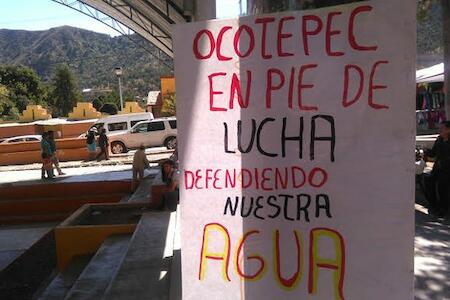 OCOTEPEC
EN PIE DE
LUCHA
DEFENDIENDO
NUESTRA
AGUA